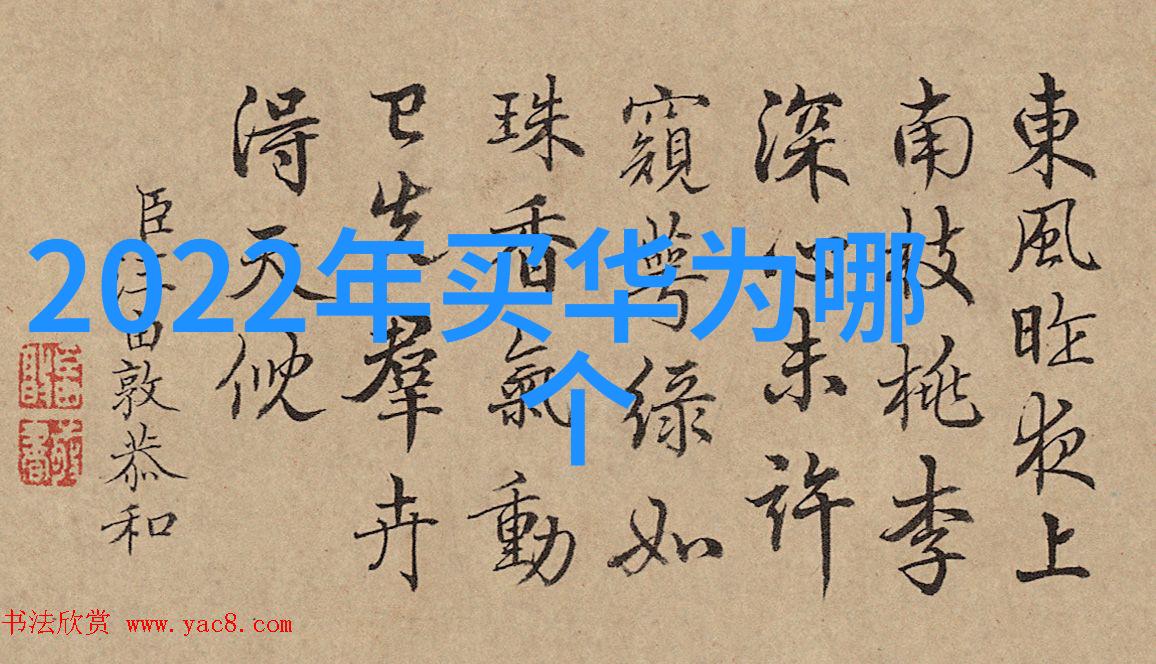 東風昨夜上
南枝桃李
深心未許
窺萼綠如
珠香氣動
已先羣卉
得天
臣汪由敦恭和
2022年买华为哪
个
书法欣赏 www.yac8.com